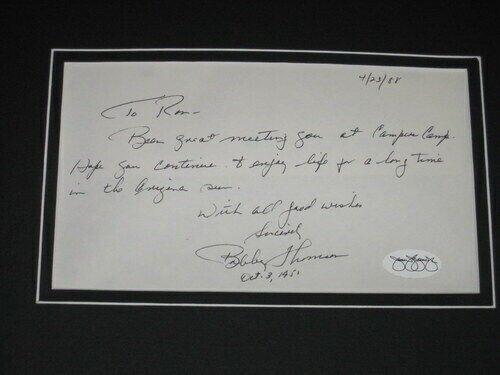 4/23/88
To Ron-
Been great meeting you at Campus Camp.
Hope you continue to enjoy life for a long time
in the Arizona sun.
With all good wishes
Sincerely
Bobby Thomson
Oct. 3, 1951